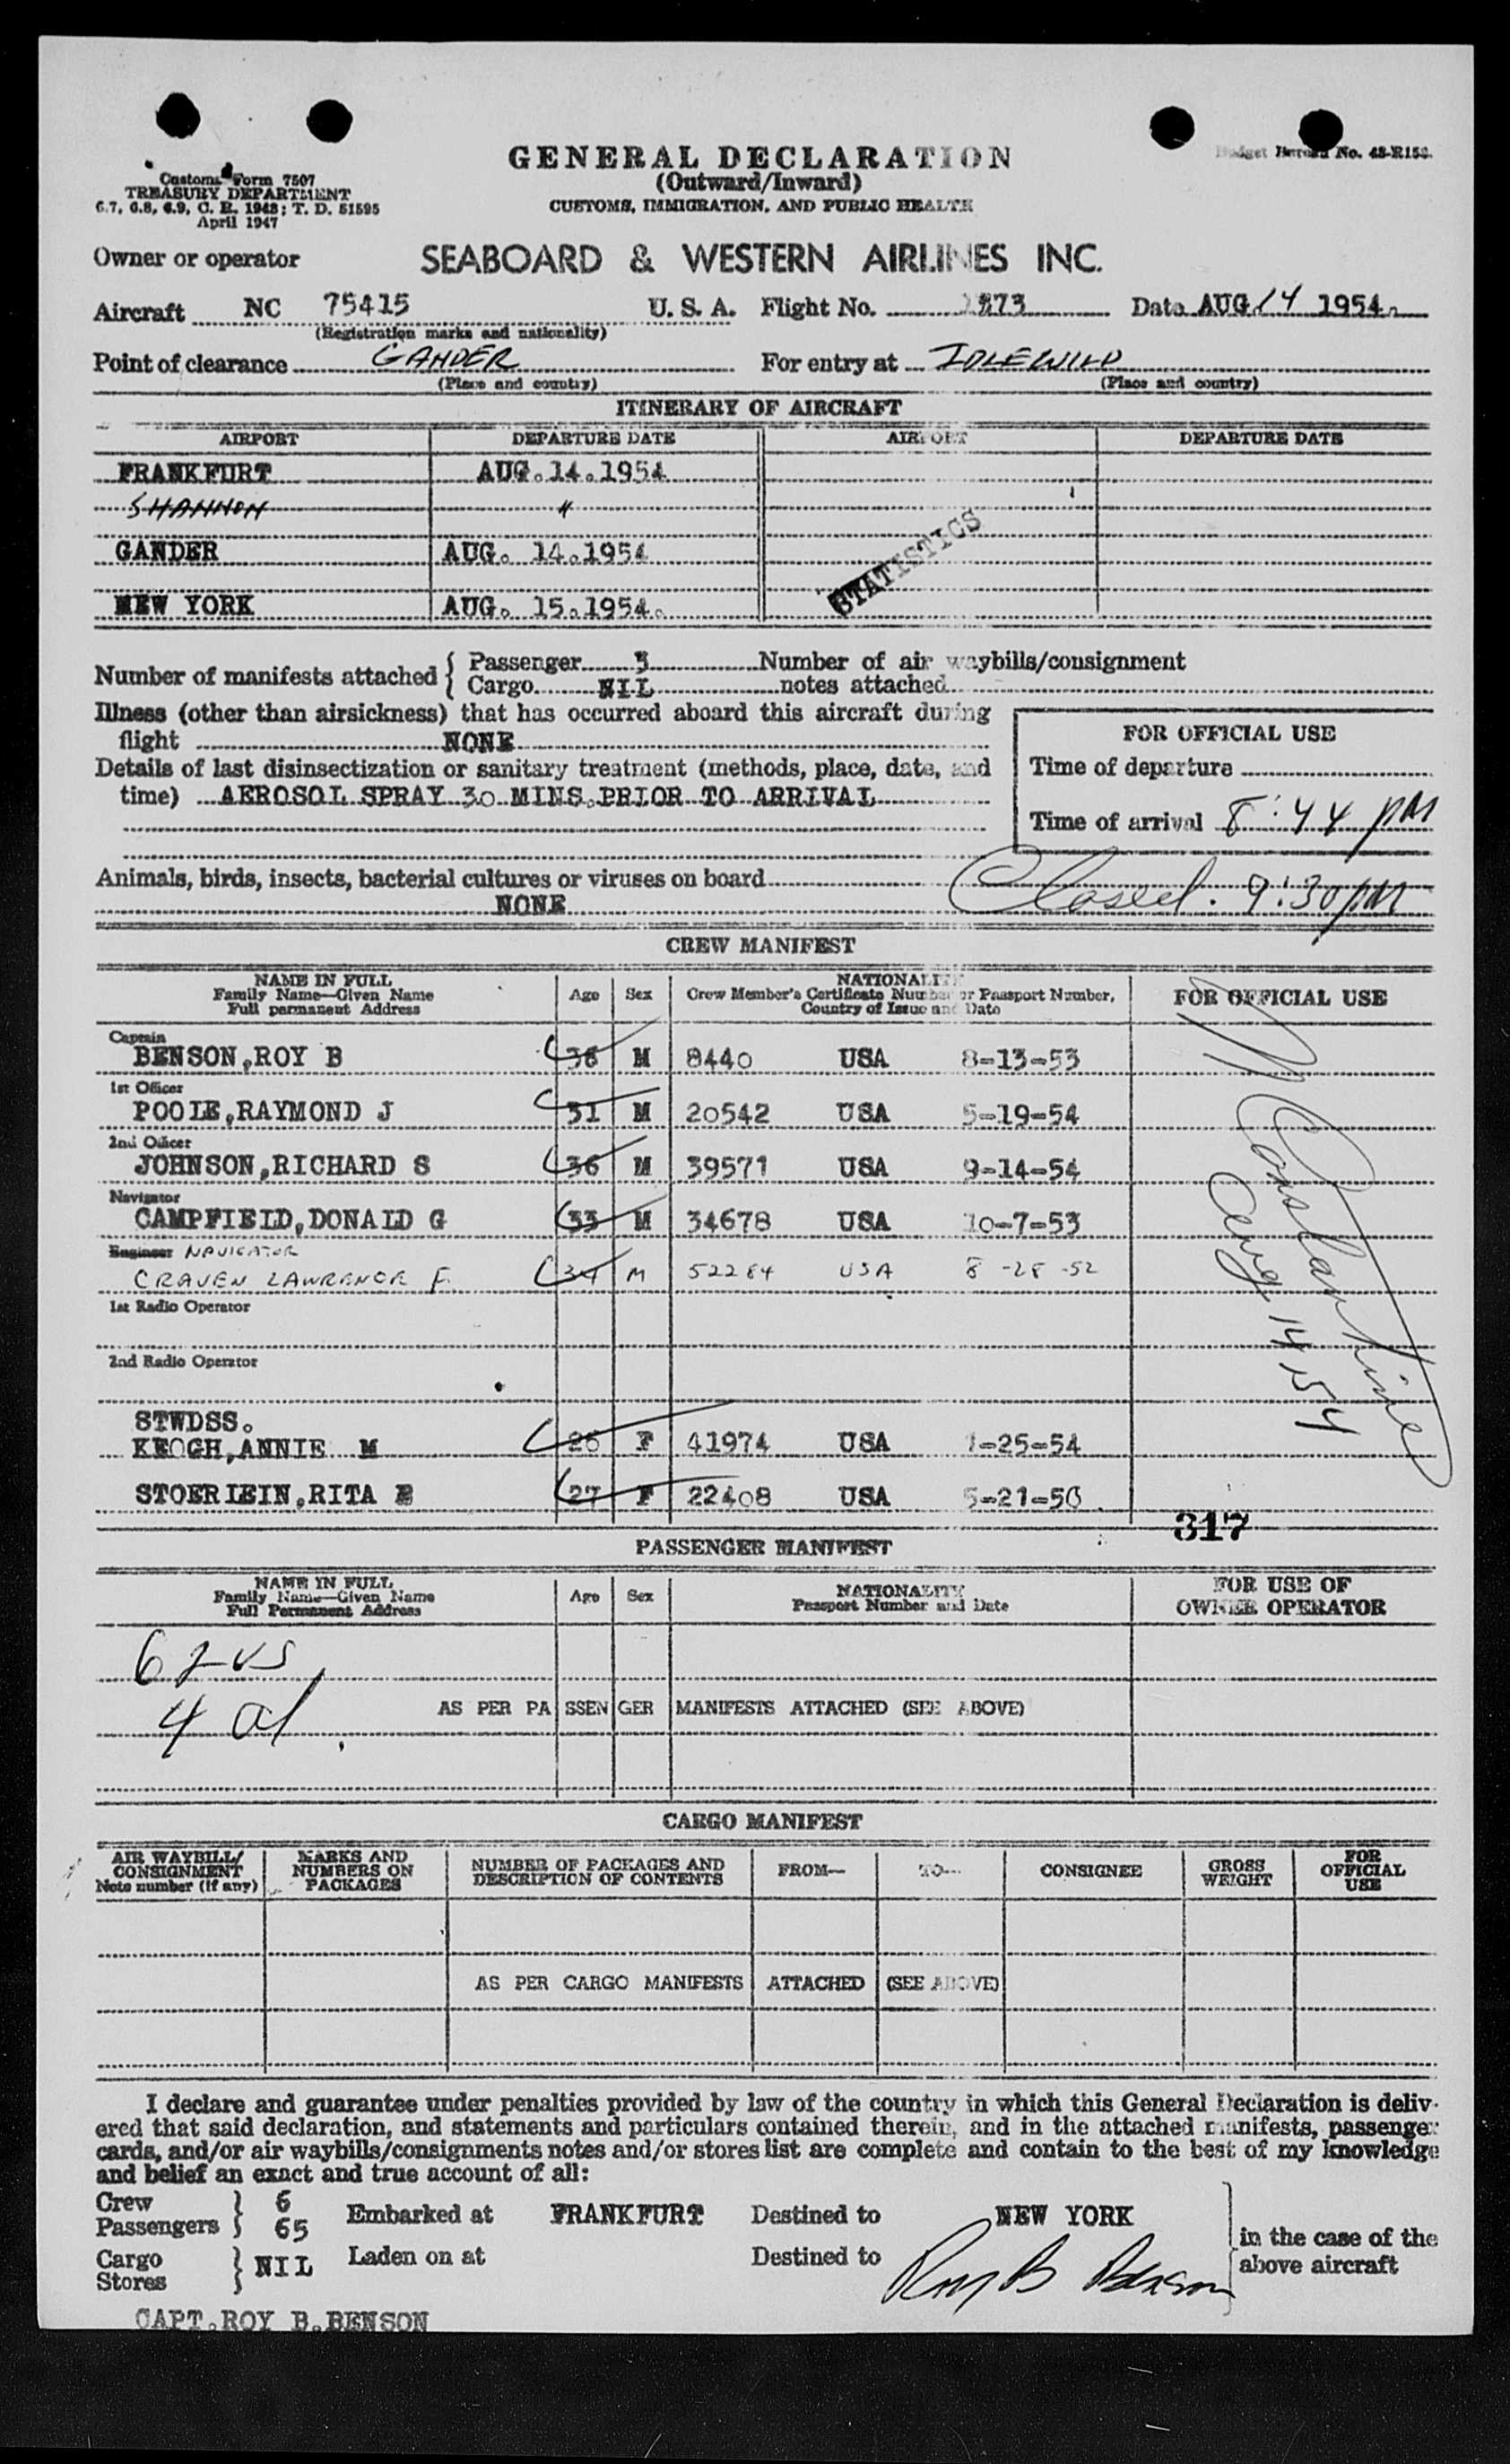 Customs Form 7507
TREASURY DEPARTMENT
6.7, 6.8, 6.9, C. R. 1948; T. D. 51595
April 1947
GENERAL DECLARATION
(Outward/Inward)
CUSTOMS, IMMIGRATION, AND PUBLIC HEALTH
Budget Bureau No. 48-R158.
Owner or operator SEABOARD & WESTERN AIRLINES INC.
Aircraft NC 75415 U. S. A. Flight No. Date AUG 14 1954.
(Registration marks and nationality)
Point of clearance GANDER For entry at IDLEWILD
(Place and country) (Place and country)
ITINERARY OF AIRCRAFT
AIRPORT DEPARTURE DATE AIRPORT DEPARTURE DATE
FRANKFURT AUG.14.1954
SHANNON "
GANDER AUG. 14.1954
NEW YORK AUG. 15.1954.
STATISTICS
Number of manifests attached { Passenger 3 Number of air waybills/consignment
Cargo NIL notes attached
Illness (other than airsickness) that has occurred aboard this aircraft during
flight NONE
Details of last disinsectization or sanitary treatment (methods, place, date, and
time) AEROSOL SPRAY 30 MINS.PRIOR TO ARRIVAL
FOR OFFICIAL USE
Time of departure
Time of arrival 8:44 PM
Animals, birds, insects, bacterial cultures or viruses on board
NONE
Closed. 9:30 PM
CREW MANIFEST
NAME IN FULL
Family Name—Given Name
Full permanent Address
Age Sex
NATIONALITY
Crew Member's Certificate Number or Passport Number,
Country of Issue and Date
FOR OFFICIAL USE
Captain
BENSON,ROY B 36 M 8440 USA 8-13-53
1st Officer
POOLE,RAYMOND J 31 M 20542 USA 5-19-54
2nd Officer
JOHNSON,RICHARD S 36 M 39571 USA 9-14-54
Navigator
CAMPFIELD,DONALD G 33 M 34678 USA 10-7-53
Engineer NAVIGATOR
CRAVEN LAWRENCE F. 34 M 52284 USA 8-28-52
1st Radio Operator
2nd Radio Operator
STWDSS.
KEOGH,ANNIE M 26 F 41974 USA 1-25-54
STOERLEIN,RITA E 27 F 22408 USA 5-21-50
Constantine
Aug 14 54
317
PASSENGER MANIFEST
NAME IN FULL
Family Name—Given Name
Full Permanent Address
Age Sex
NATIONALITY
Passport Number and Date
FOR USE OF
OWNER OPERATOR
4 al
AS PER PASSENGER MANIFESTS ATTACHED (SEE ABOVE)
CARGO MANIFEST
AIR WAYBILL/
CONSIGNMENT
Note number (if any)
MARKS AND
NUMBERS ON
PACKAGES
NUMBER OF PACKAGES AND
DESCRIPTION OF CONTENTS
FROM— TO— CONSIGNEE
GROSS
WEIGHT
FOR
OFFICIAL
USE
AS PER CARGO MANIFESTS ATTACHED (SEE ABOVE)
I declare and guarantee under penalties provided by law of the country in which this General Declaration is deliv-
ered that said declaration, and statements and particulars contained therein, and in the attached manifests, passenger
cards, and/or air waybills/consignments notes and/or stores list are complete and contain to the best of my knowledge
and belief an exact and true account of all:
Crew 6
Passengers 65
Embarked at FRANKFURT Destined to NEW YORK
Cargo
Stores
NIL Laden on at Destined to
in the case of the
above aircraft
Roy B Benson
CAPT.ROY B.BENSON